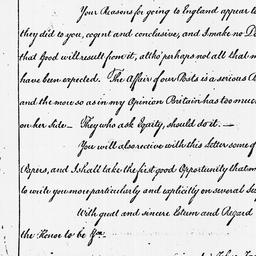 Your Reasons for going to England appear to
they did to you, cogent and conclusive, and I make no Do
that Good will result from it, altho' perhaps not all that m
have been expected. The Affair of our Posts is a serious A
and the more so as in my Opinion Britain has too much
on her Side — They who ask Equity, should do it. —
You will also receive with this Letter some of
Papers, and I shall take the first good Opportunity that m
to write you more particularly and explicitly on several Su
With great and sincere Esteem and Regard
the Honor to be Yrs.